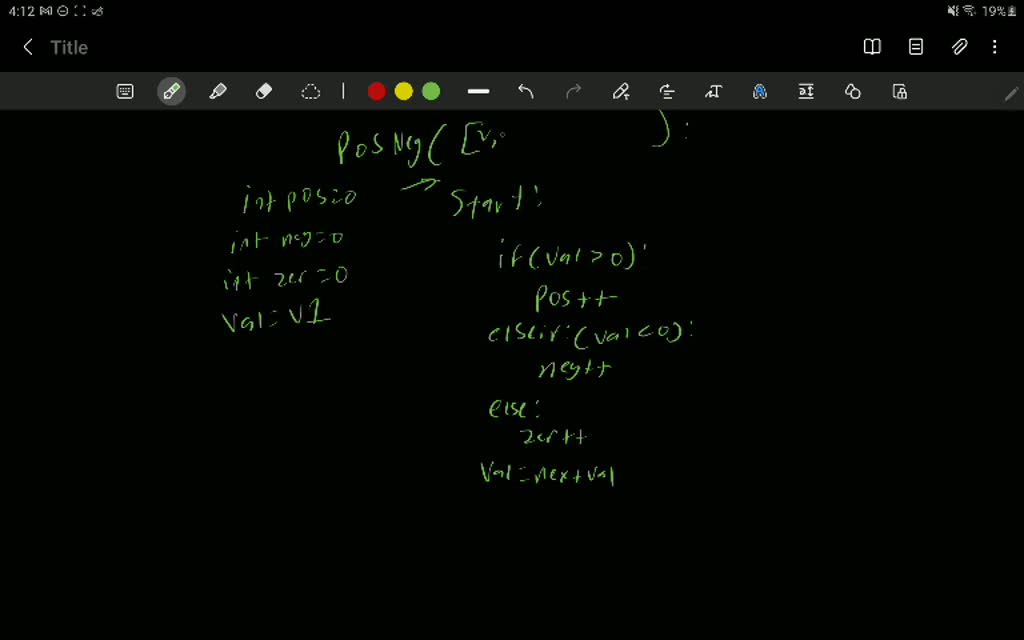 4:12 19%
Title
PosNeg( [v, ):
int pos=0
int neg=0
int zer=0
val=v1
Start:
if(val>0):
pos++
elseif:(val<0):
neg++
else:
zer++
val=nextval